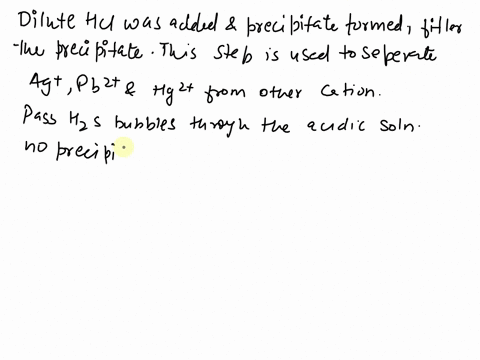 Dilute HCl was added & precipitate formed, filter
the precipitate. This step is used to seperate
Ag⁺, Pb²⁺ & Hg²⁺ from other cation.
Pass H₂S bubbles through the acidic soln.
no precipi